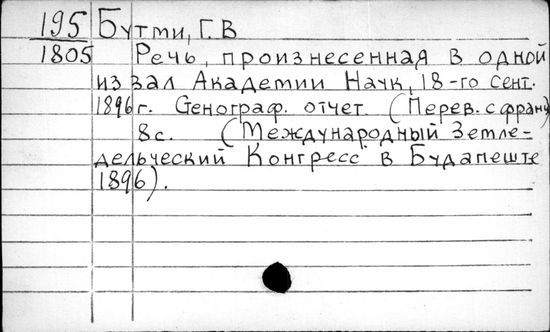 195 Бутми, Г.В
1805 Речь, произнесенная в одной
из зал Академии Наук, 18-го сент.
1896 г. Стенограф. отчет. (Перев. с франц.
8с. (Международный Земле-
дельческий Конгресс в Будапеште
1896).